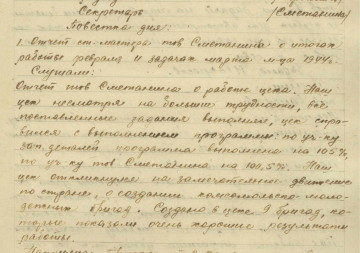 Секретарь (Сметанина)
Повестка дня:
1. Отчет ст. мастера тов Сметанина о итогах
работы февраля и задачах марта м-ца 1944г.
Слушали:
Отчет тов Сметанина о работе цеха. Наш
цех несмотря на большие трудности, все
поставленные задания выполнил, цех спра-
вился с выполнением программы: по уч-ку
зап. деталей программа выполнена на 105%
по уч-ку тов Сметанина на 109,5%. Наш
цех откликнулся на замечательное движение
по стране, о создании комсомольско-моло-
дежных бригад. Создано в цехе 9 бригад, ко-
торые показали очень хорошие результаты
работы.